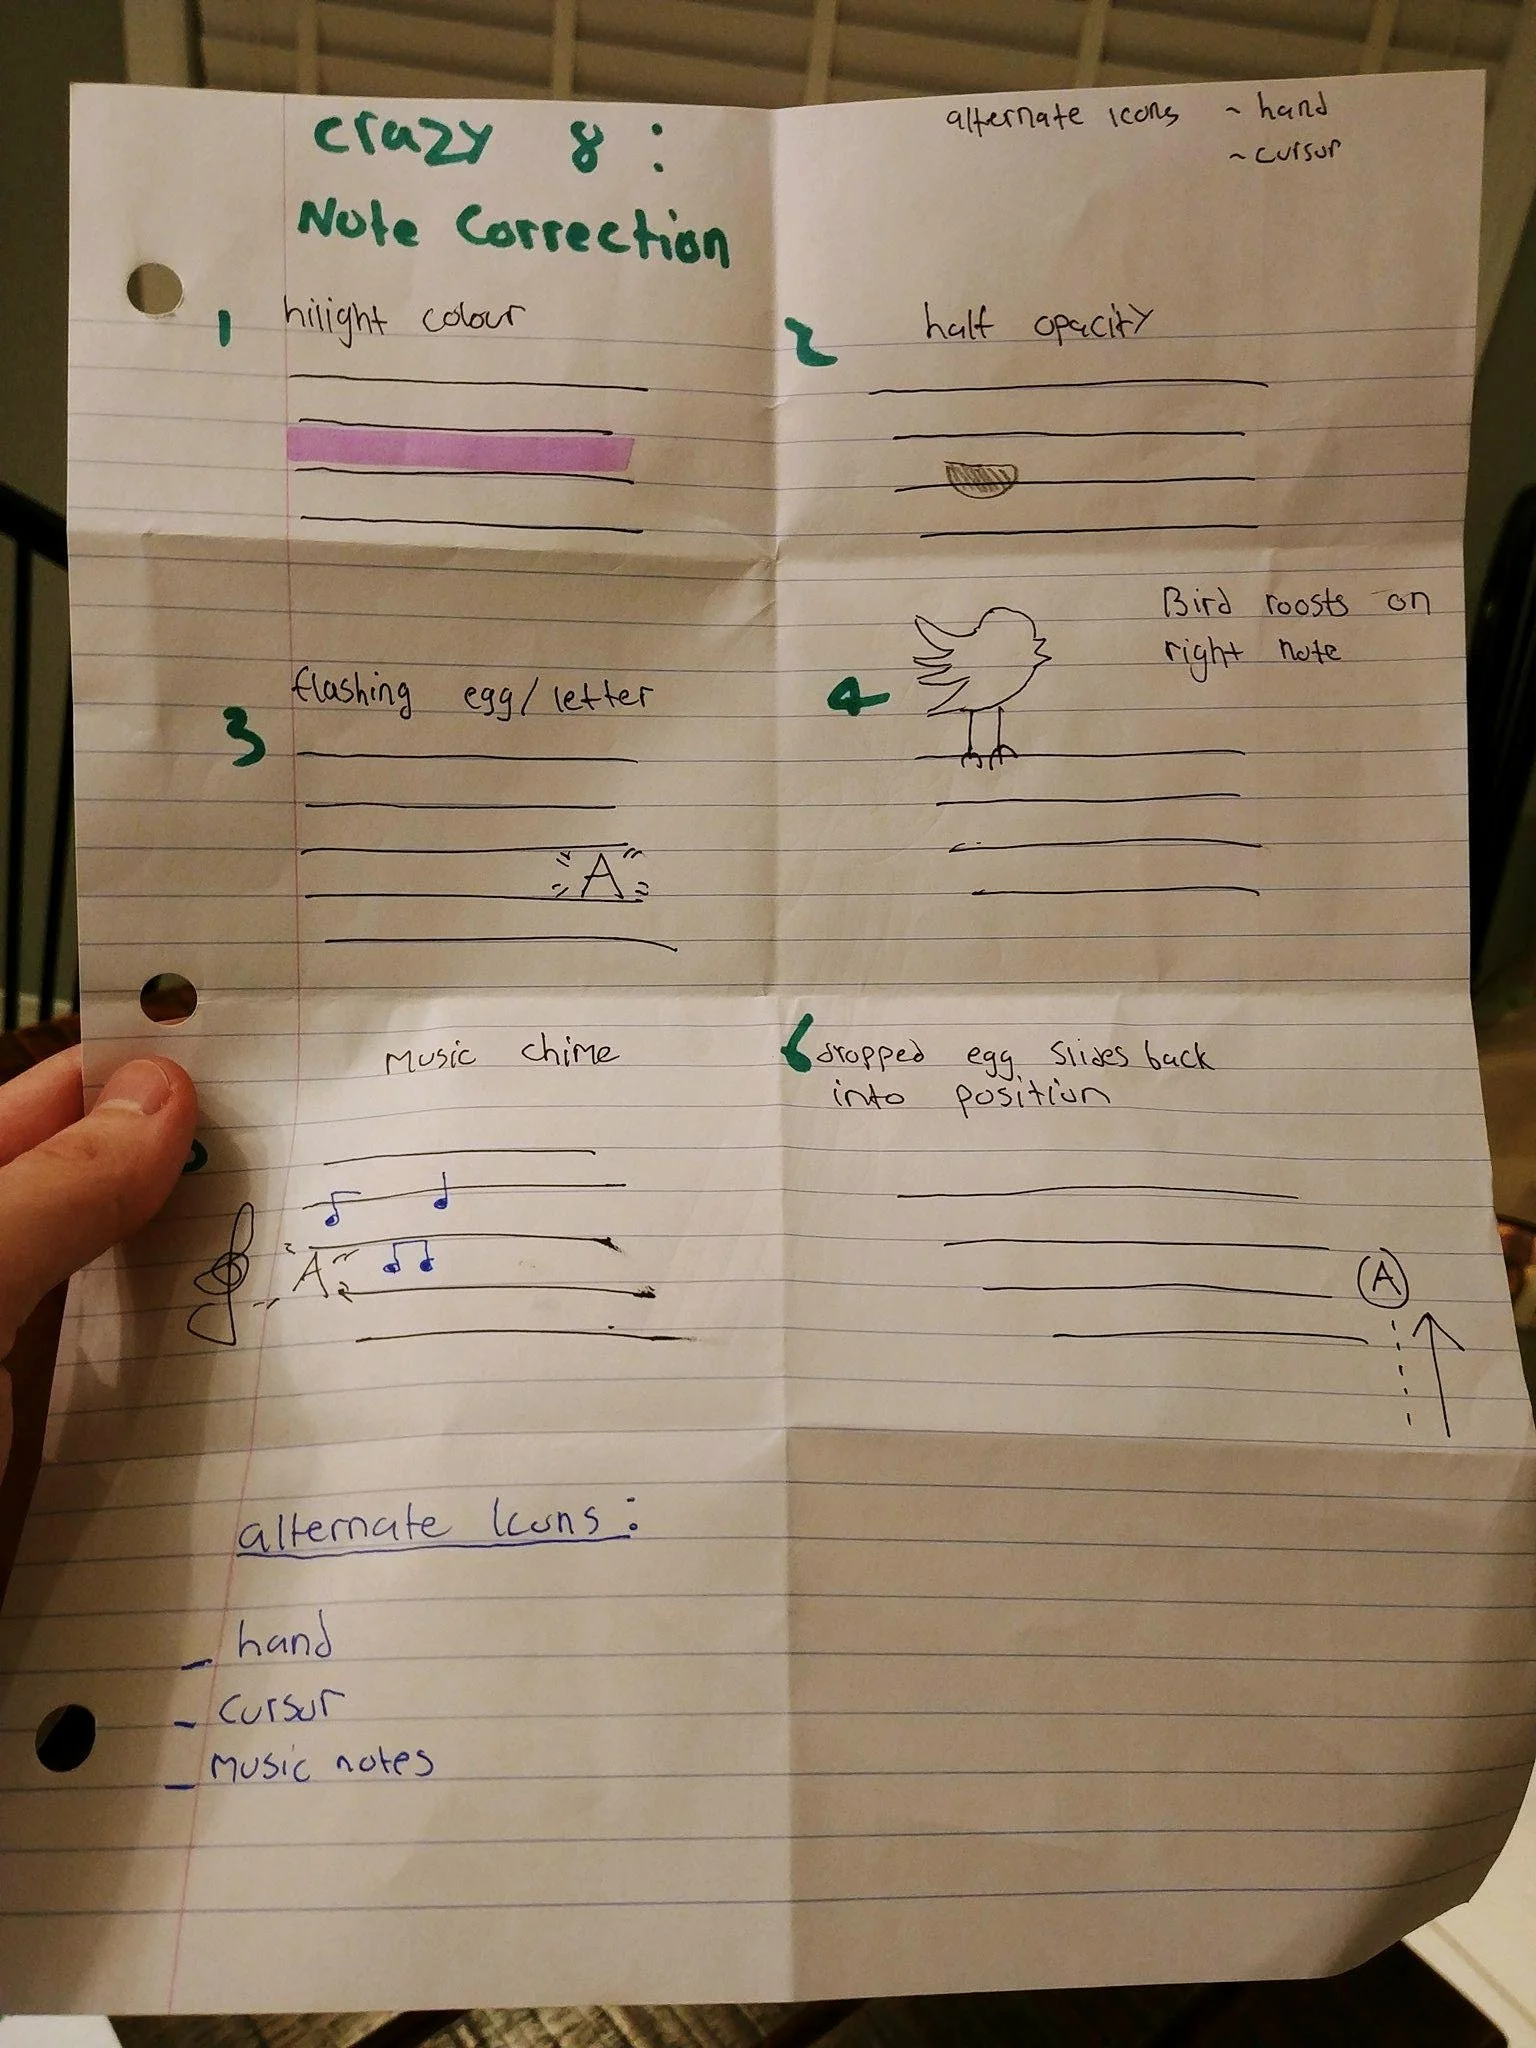 crazy 8:
Note Correction
alternate icons ~ hand
~ cursur
1 hilight colour
2 half opacity
3 flashing egg/letter
A
4 Bird roosts on
right note
Music chime
A
6 dropped egg slides back
into position
A
alternate Icons:
- hand
- cursur
- Music notes